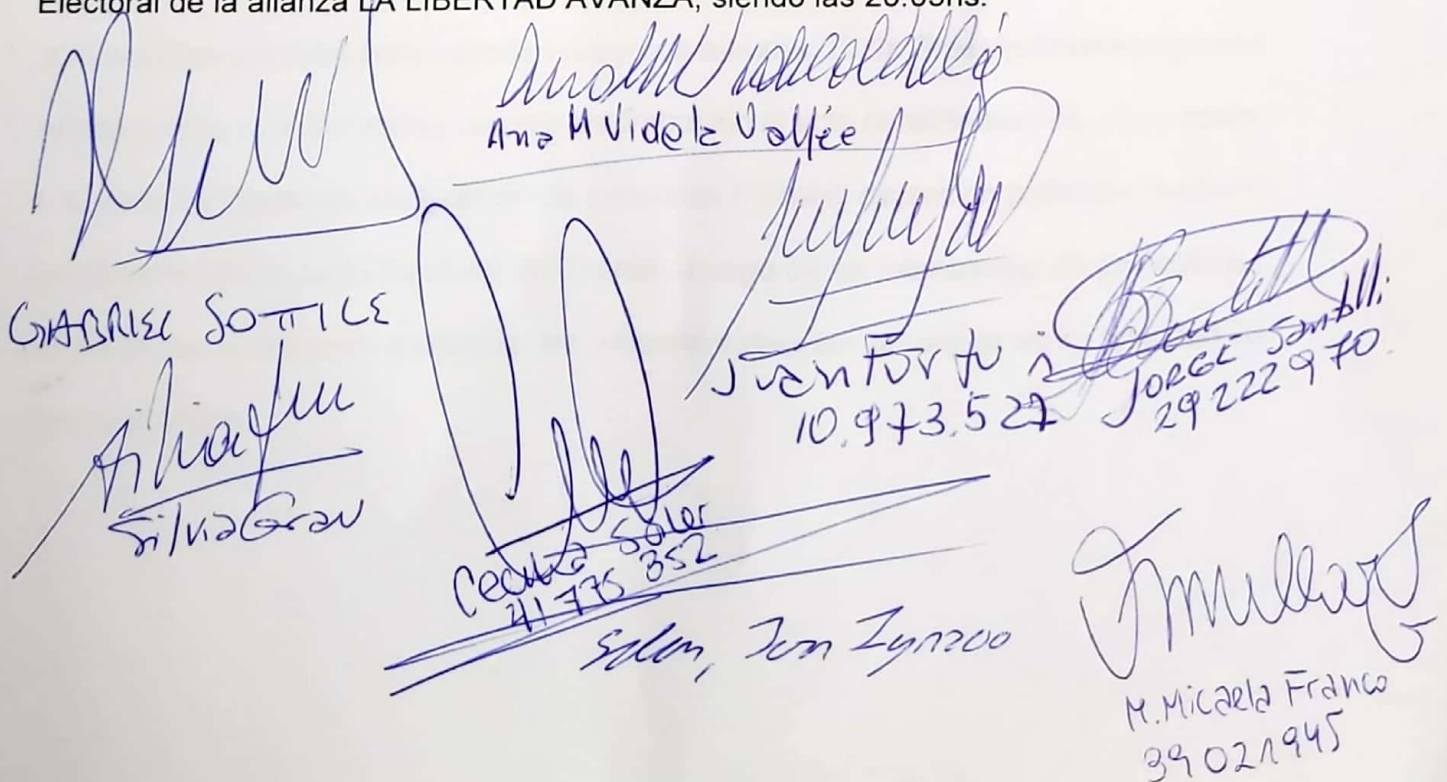 Electoral de la alianza LA LIBERTAD AVANZA, siendo las 20:05hs.
Ana M Videla Vallée
GABRIEL SOTTILE
Juan Fortuni
10.973.527
JORGE Santilli
29222970
Silvia Grau
Cecilia Soler
41775352
Juan Ignacio
M. Micaela Franco
39021945